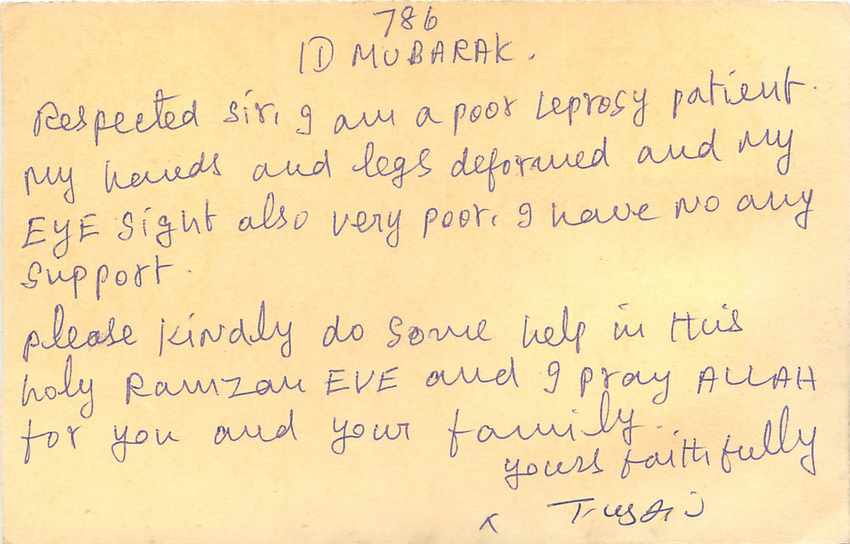 786
ID MUBARAK.
Respected sir, I am a poor leprosy patient.
My hands and legs deformed and my
EYE sight also very poor. I have no any
support.
please kindly do some help in this
holy Ramzan EVE and I pray ALLAH
for you and your family.
yours faithfully